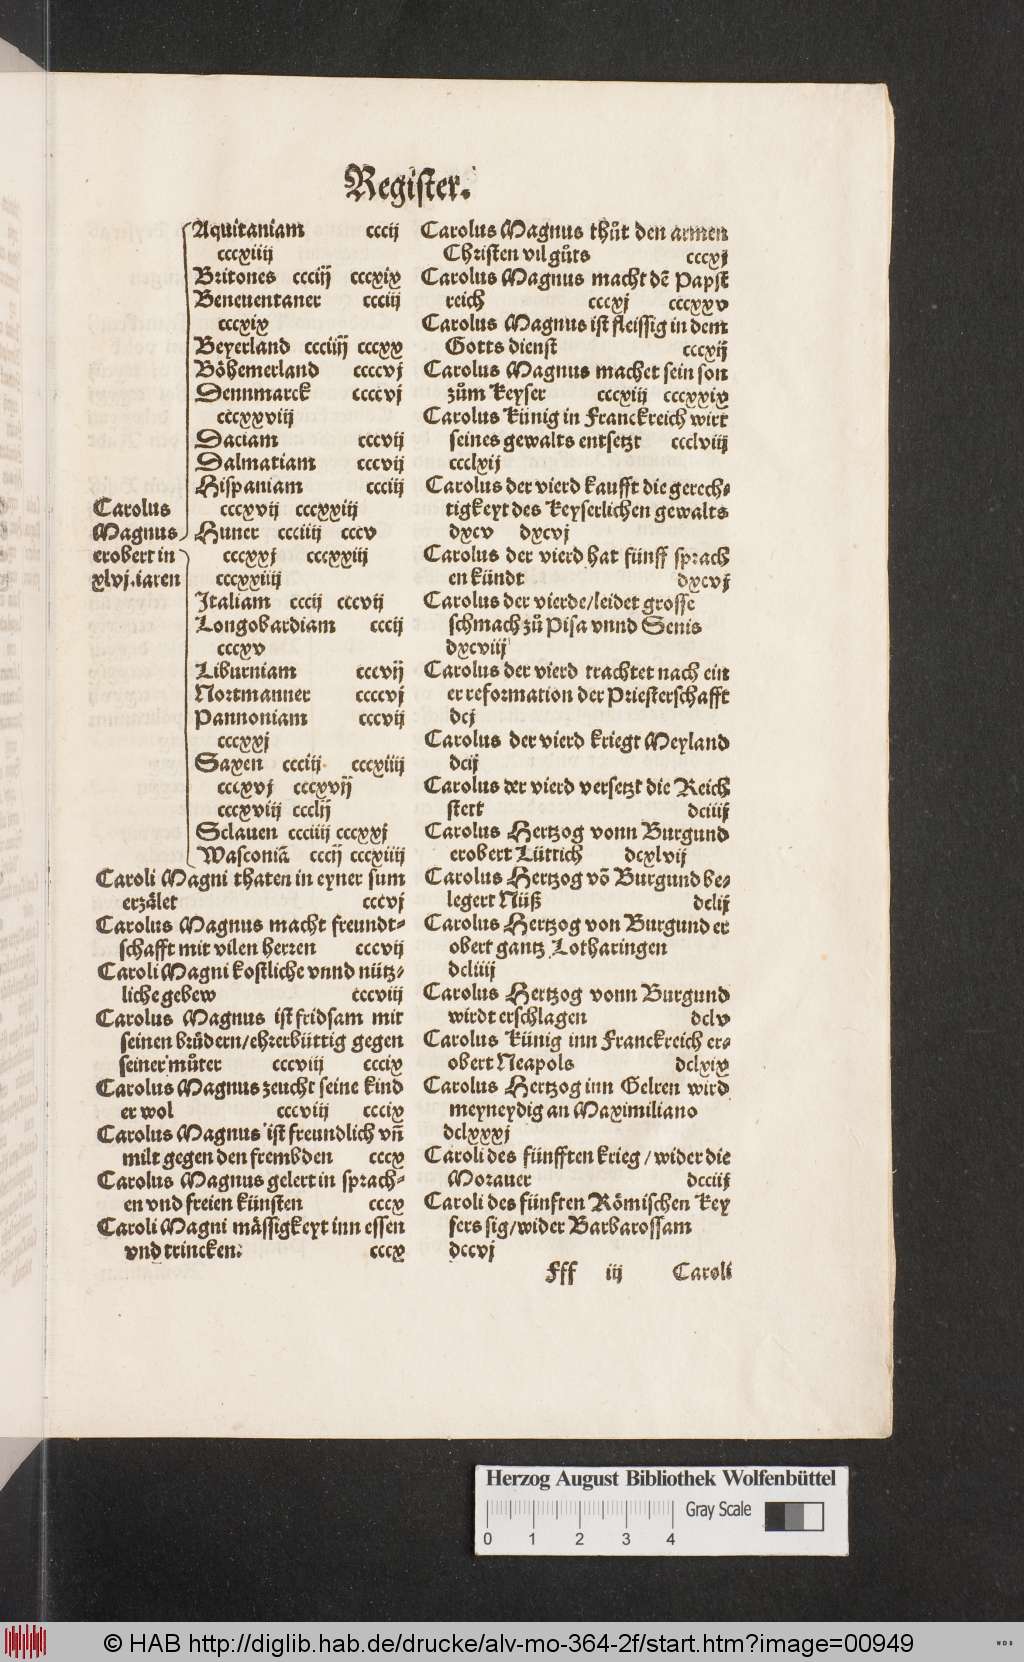 Register.
Aquitaniam cccij
cccxiiij
Britones ccciij cccxix
Beneuentaner ccciij
cccxix
Beyerland ccciiij cccxx
Böhemerland ccccvj
Dennmarck ccccvj
cccxxviij
Daciam cccvij
Dalmatiam cccvij
Hispaniam ccciij
cccxvij cccxxiij
Carolus
Magnus
erobert in
xlvj.iaren
Huner ccciiij cccv
cccxxj cccxxiij
cccxxiiij
Italiam cccij cccvij
Longobardiam cccij
cccxv
Liburniam cccvij
Nortmanner ccccvj
Pannoniam cccvij
cccxxj
Saxen ccciij cccxiiij
cccxvj cccxvij
cccxviij ccclij
Sclauen ccciiij cccxxj
Wasconiā cccij cccxiiij
Caroli Magni thaten in eyner sum
erzälet cccvj
Carolus Magnus macht freundt-
schafft mit vilen herren cccvij
Caroli Magni kostliche vnnd nütz-
liche gebew cccviij
Carolus Magnus ist fridsam mit
seinen brůdern/ehrerbüttig gegen
seiner můter cccviij cccix
Carolus Magnus zeucht seine kind
er wol cccviij cccix
Carolus Magnus ist freundlich vn̄
milt gegen den frembden cccx
Carolus Magnus gelert in sprach-
en vnd freien künsten cccx
Caroli Magni mässigkeyt inn essen
vnd trincken. cccx
Carolus Magnus thůt den armen
Christen vil gůts cccxj
Carolus Magnus macht dē Papst
reich cccxj cccxxv
Carolus Magnus ist fleissig in dem
Gotts dienst cccxij
Carolus Magnus machet sein son
zům Keyser cccxiij cccxxix
Carolus Künig in Franckreich wirt
seines gewalts entsetzt ccclviij
ccclxij
Carolus der vierd kaufft die gerech-
tigkeyt des Keyserlichen gewalts
dxcv dxcvj
Carolus der vierd hat fünff sprach
en kündt dxcvj
Carolus der vierde/leidet grosse
schmach zů Pisa vnnd Senis
dxcviij
Carolus der vierd trachtet nach ein
er reformation der Priesterschafft
dcj
Carolus der vierd kriegt Meyland
dcij
Carolus der vierd versetzt die Reich
stett dciiij
Carolus Hertzog vonn Burgund
erobert Lüttich dcxlvij
Carolus Hertzog vō Burgund be-
legert Nüß dclij
Carolus Hertzog von Burgund er
obert gantz Lotharingen
dcliiij
Carolus Hertzog vonn Burgund
wirdt erschlagen dclv
Carolus Künig inn Franckreich er-
obert Neapols dclxix
Carolus Hertzog inn Gelren wird
meyneydig an Maximiliano
dclxxxj
Caroli des fünfften krieg/wider die
Morauer dcciij
Caroli des fünften Römischen Key
sers sig/wider Barbarossam
dccvj
Fff iij Caroli
Herzog August Bibliothek Wolfenbüttel
Gray Scale
0 1 2 3 4
© HAB http://diglib.hab.de/drucke/alv-mo-364-2f/start.htm?image=00949